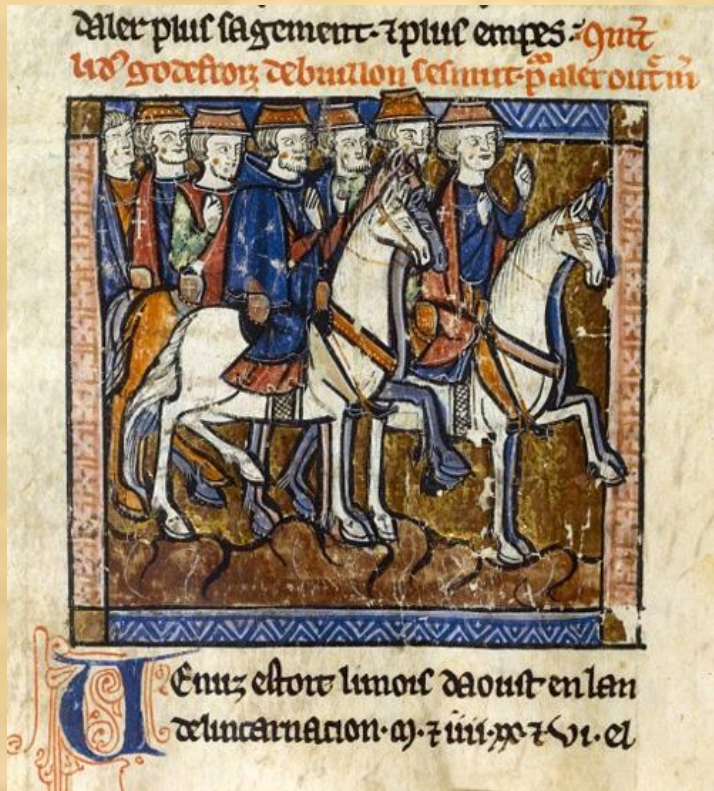 daler plus sagement · ⁊ plus empes · Qu̅t
li d' godefroiz de buillon sesmut · p̅ aler outᵉ m̅
Enuz estoit li mois daoust en lan
de lincarnacion · m · ⁊ iiii · xx · ⁊ vi · el